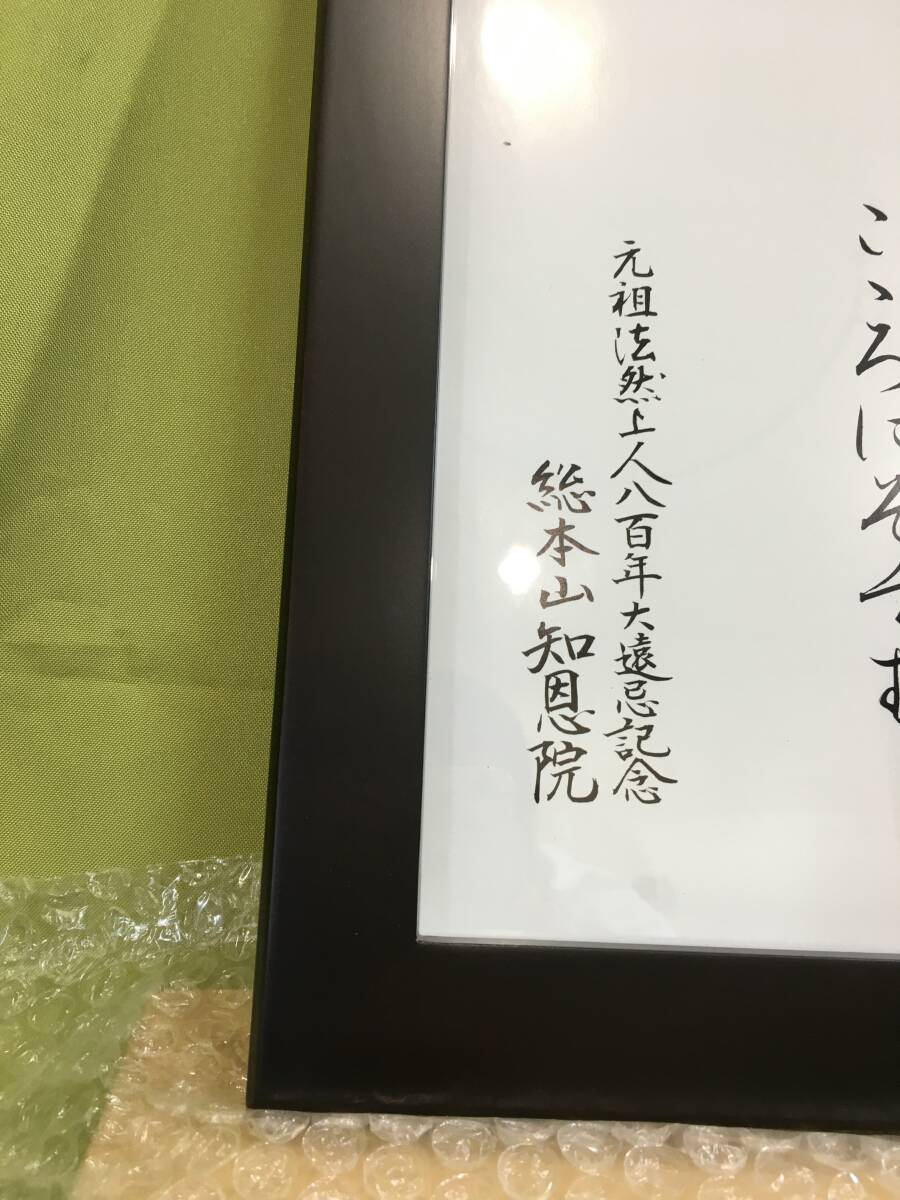 こゝろにぞ
元祖法然上人八百年大遠忌記念
総本山知恩院